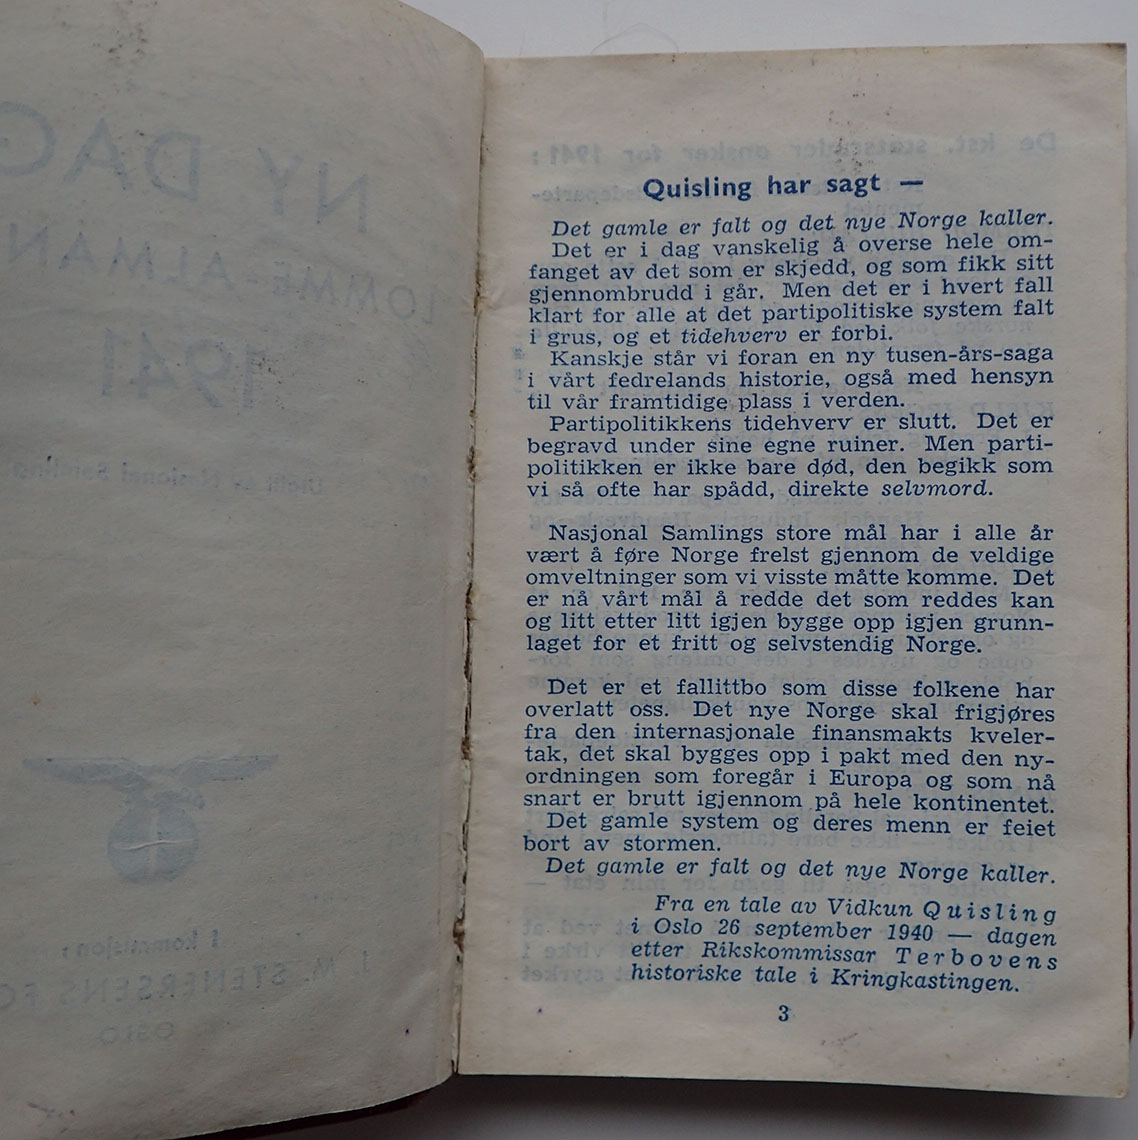 NY DAG
LOMME-ALMAN
1941
Utgitt av Nasjonal Samling
I kommisjon:
J. M. STENERSENS FO
OSLO
De kst. statsråder ønsker for 1941:
Quisling har sagt —
Det gamle er falt og det nye Norge kaller.
Det er i dag vanskelig å overse hele om-
fanget av det som er skjedd, og som fikk sitt
gjennombrudd i går. Men det er i hvert fall
klart for alle at det partipolitiske system falt
i grus, og et tidehverv er forbi.
Kanskje står vi foran en ny tusen-års-saga
i vårt fedrelands historie, også med hensyn
til vår framtidige plass i verden.
Partipolitikkens tidehverv er slutt. Det er
begravd under sine egne ruiner. Men parti-
politikken er ikke bare død, den begikk som
vi så ofte har spådd, direkte selvmord.
Nasjonal Samlings store mål har i alle år
vært å føre Norge frelst gjennom de veldige
omveltninger som vi visste måtte komme. Det
er nå vårt mål å redde det som reddes kan
og litt etter litt igjen bygge opp igjen grunn-
laget for et fritt og selvstendig Norge.
Det er et fallittbo som disse folkene har
overlatt oss. Det nye Norge skal frigjøres
fra den internasjonale finansmakts kveler-
tak, det skal bygges opp i pakt med den ny-
ordningen som foregår i Europa og som nå
snart er brutt igjennom på hele kontinentet.
Det gamle system og deres menn er feiet
bort av stormen.
Det gamle er falt og det nye Norge kaller.
Fra en tale av Vidkun Quisling
i Oslo 26 september 1940 — dagen
etter Rikskommissar Terbovens
historiske tale i Kringkastingen.
3